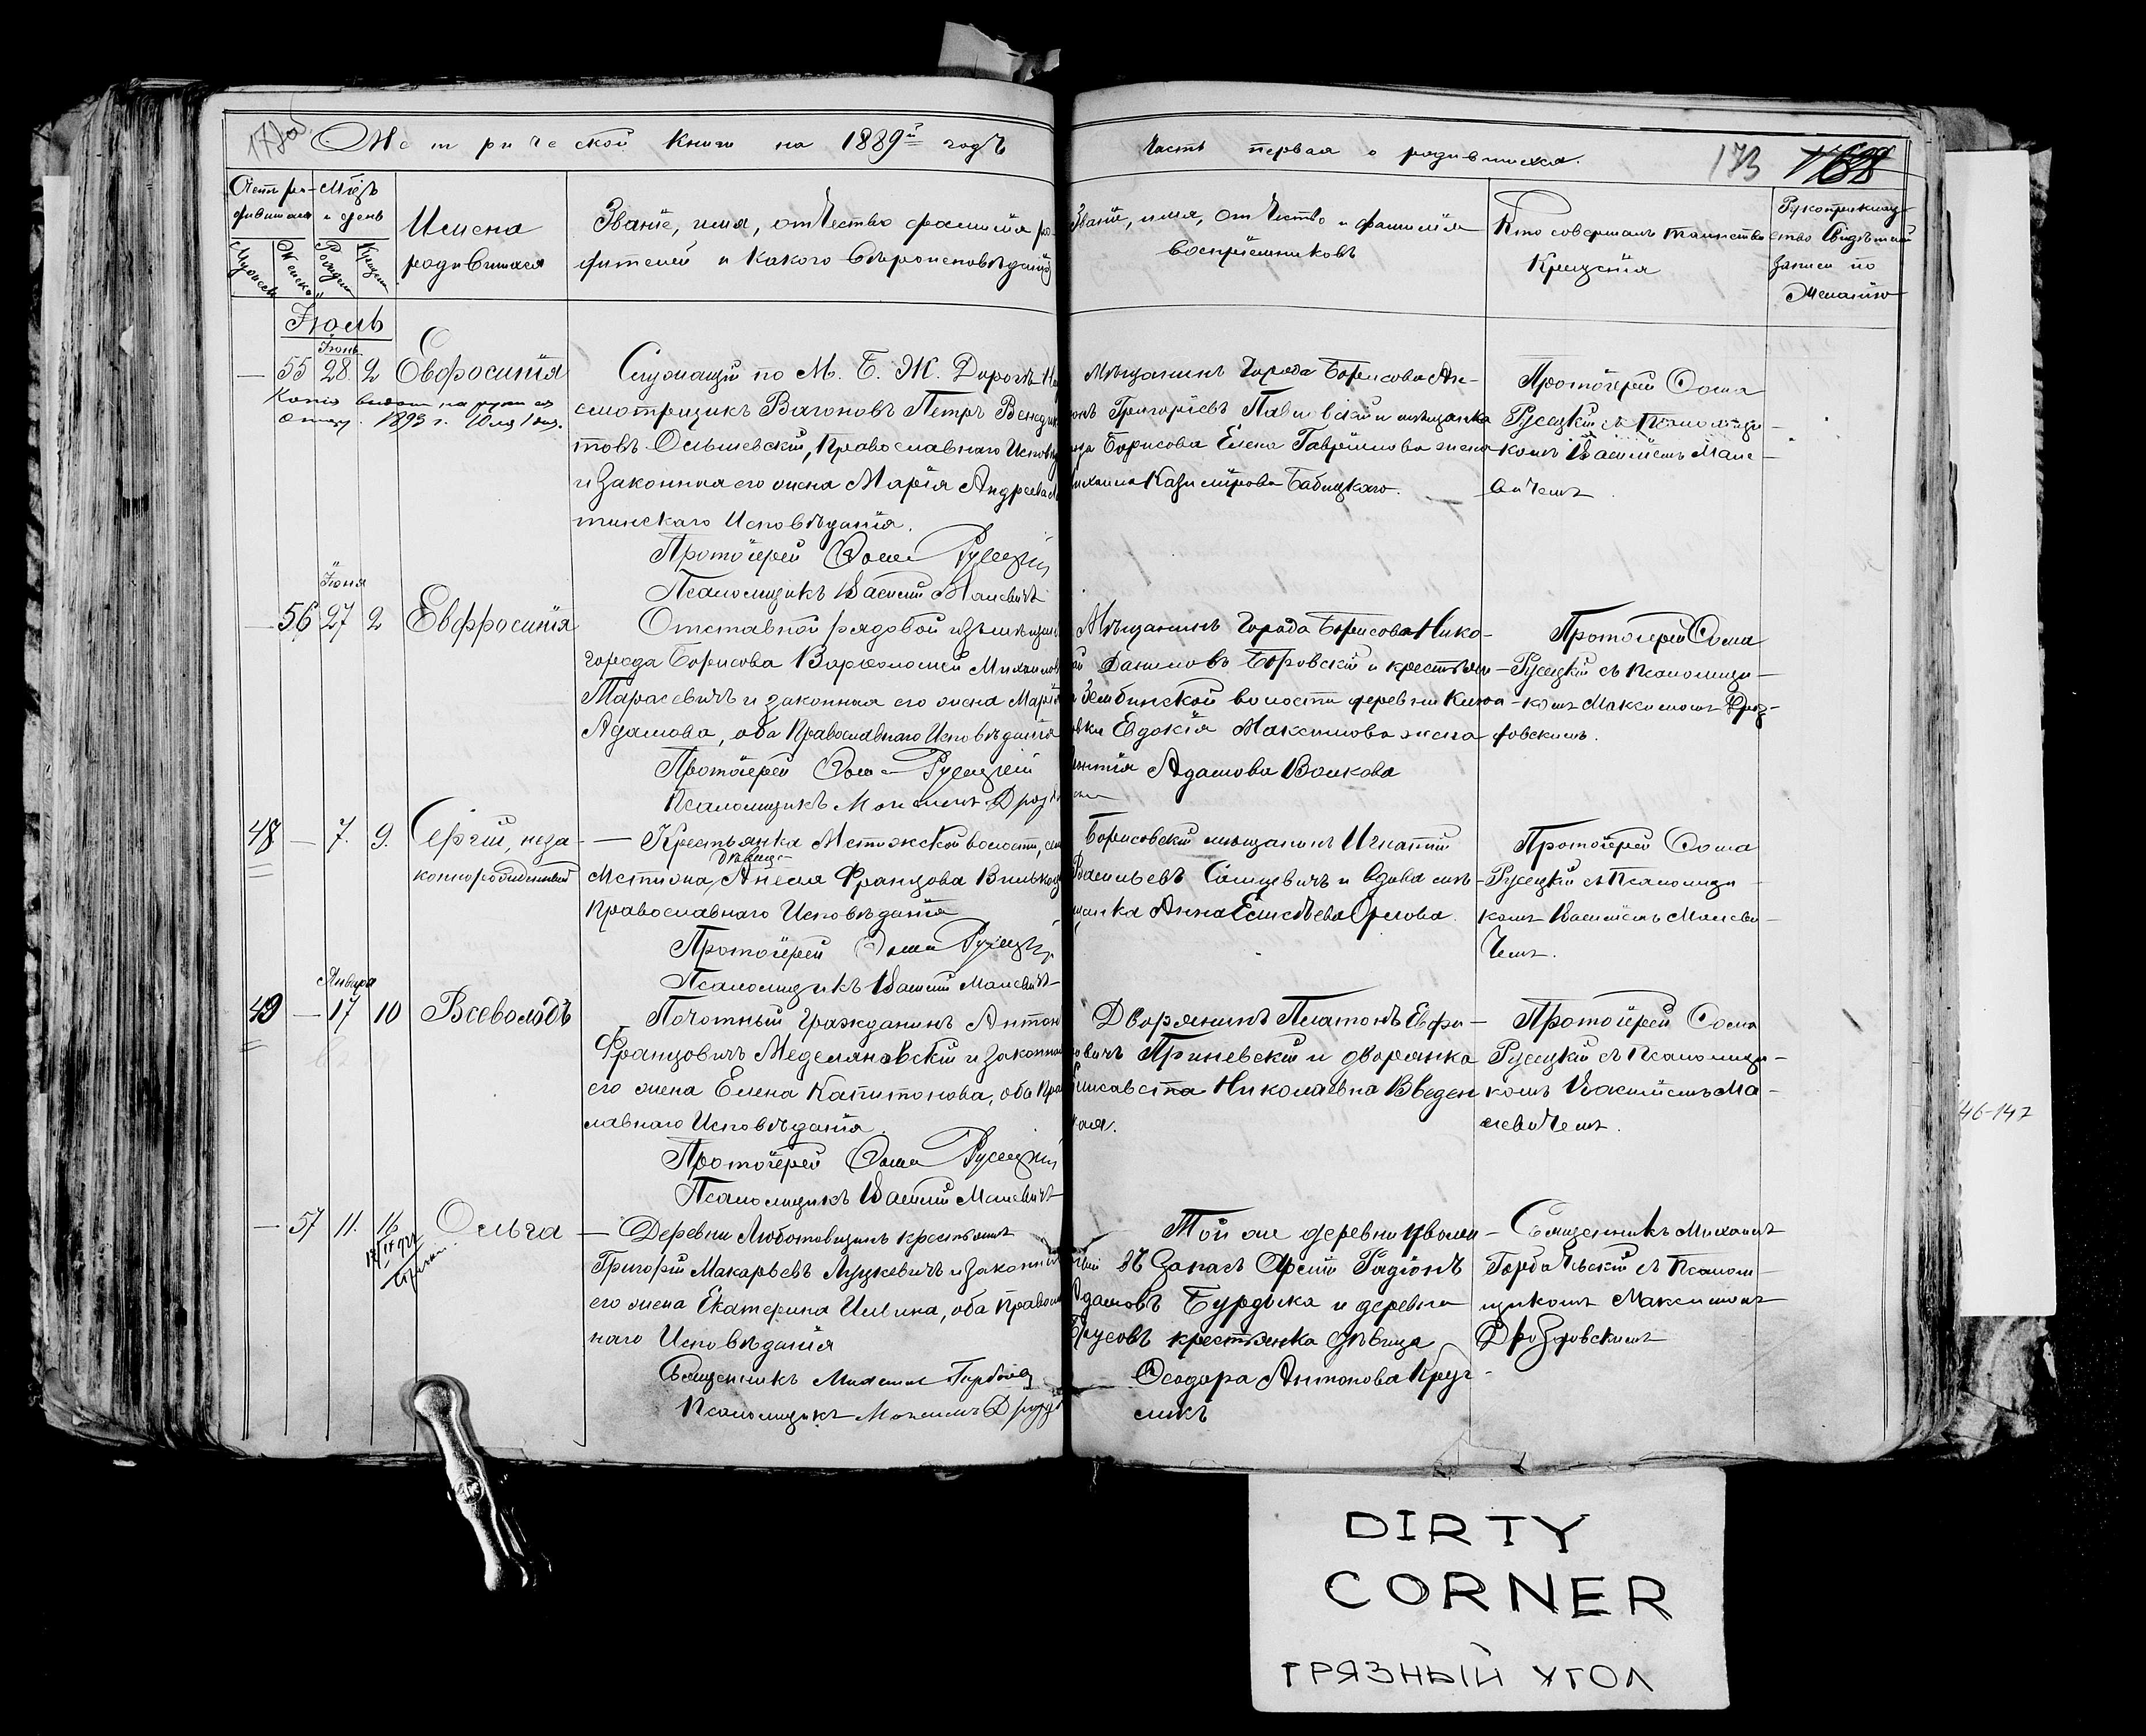 Метрической книги на 1889й годъ
Часть первая о родившихся.
173
Счетъ родившихся
Мѣсяцъ и день
Имена родившихся
Званіе, имя, отчество фамилія родителей и какого вѣроисповѣданія
Званіе, имя, отчество и фамилія воспріемниковъ
Кто совершалъ таинство Крещенія
Іюль
Іюня
— 55 28. 2 Евфросинія
1893 г.
Служащій по М. Б. Ж. Дорогѣ
смотрщикъ Вагоновъ Петръ Венедик
товъ Ольшевскій, Православнаго Исповѣд
и законная его жена Марія Андреева
тинскаго Исповѣданія.
Протоіерей Ѳома Русецкій
Псаломщикъ Василій Малевичъ
Мѣщанинъ Города Борисова Ан-
онъ Григорьевъ Павловскій и мѣщанка
ода Борисова Елена Гавріилова жена
ихаила Казимірова Бабицкаго.
Протоіерей Ѳома
Русецкій съ Псаломщи-
комъ Василіемъ Мале-
вичемъ.
Іюня
— 56 27 2 Евфросинія
Отставной рядовой изъ мѣщанъ
города Борисова Варѳоломей Михаиловъ
Тарасевичъ и законная его жена Марія
Адамова, оба Православнаго Исповѣданія
Протоіерей Ѳома Русецкій
Псаломщикъ Максимъ Дроздо
Мѣщанинъ Города Борисова Нико-
ай Даниловъ Боровскій и крестьян-
а Зембинской волости деревни
Евдокія Максимова жена
Адамова Волкова
Протоіерей Ѳома
Русецкій съ псаломщи-
комъ Максимомъ Дроз-
довскимъ.
48 — 7. 9. Сергій, неза-
коннорожденный
— Крестьянка Мстижской волости, села
дѣвица
Мстижа, Анеля Францова
Православнаго Исповѣданія
Протоіерей Ѳома Русецкій
Псаломщикъ Василій Малевичъ
Борисовскій мѣщанинъ Игнатій
Васильевъ и вдова мѣ-
щанка Анна Елисѣева Орлова.
Протоіерей Ѳома
Русецкій съ Псаломщи-
комъ Василіемъ Малеви-
чемъ.
Января
49 — 17 10 Всеволодъ
Почотный Гражданинъ Антон
Францовичъ Меделяновскій и законная
его жена Елена Капитонова, оба Прав
лавнаго Исповѣданія.
Протоіерей Ѳома Русецкій
Псаломщикъ Василій Малевичъ
Дворянинъ Платонъ Евфи-
овичъ Гриневскій и дворянка
Елисавета Николаевна Введен
кая.
Протоіерей Ѳома
Русецкій съ Псаломщи-
комъ Василіемъ Ма-
левичемъ.
— 57 11. 16 Ольга
— Деревни Любатовщины крестьянинъ
Григорій Макарьевъ Луцкевичъ и законная
его жена Екатерина Ильина, оба Правосл
наго Исповѣданія
Священникъ Михаилъ Горбач
Псаломщикъ Максимъ Дроздо
Той же деревни уволи-
ный въ Запасъ Арміи Родіонъ
Адамовъ Бурдыка и деревни
Брусовъ крестьянка дѣвица
Ѳеодора Антонова Круг-
ликъ
Священникъ Михаилъ
Горбачевскій съ Псалом-
щикомъ Максимомъ
Дроздовскимъ
46-147
DIRTY
CORNER
ГРЯЗНЫЙ УГОЛ